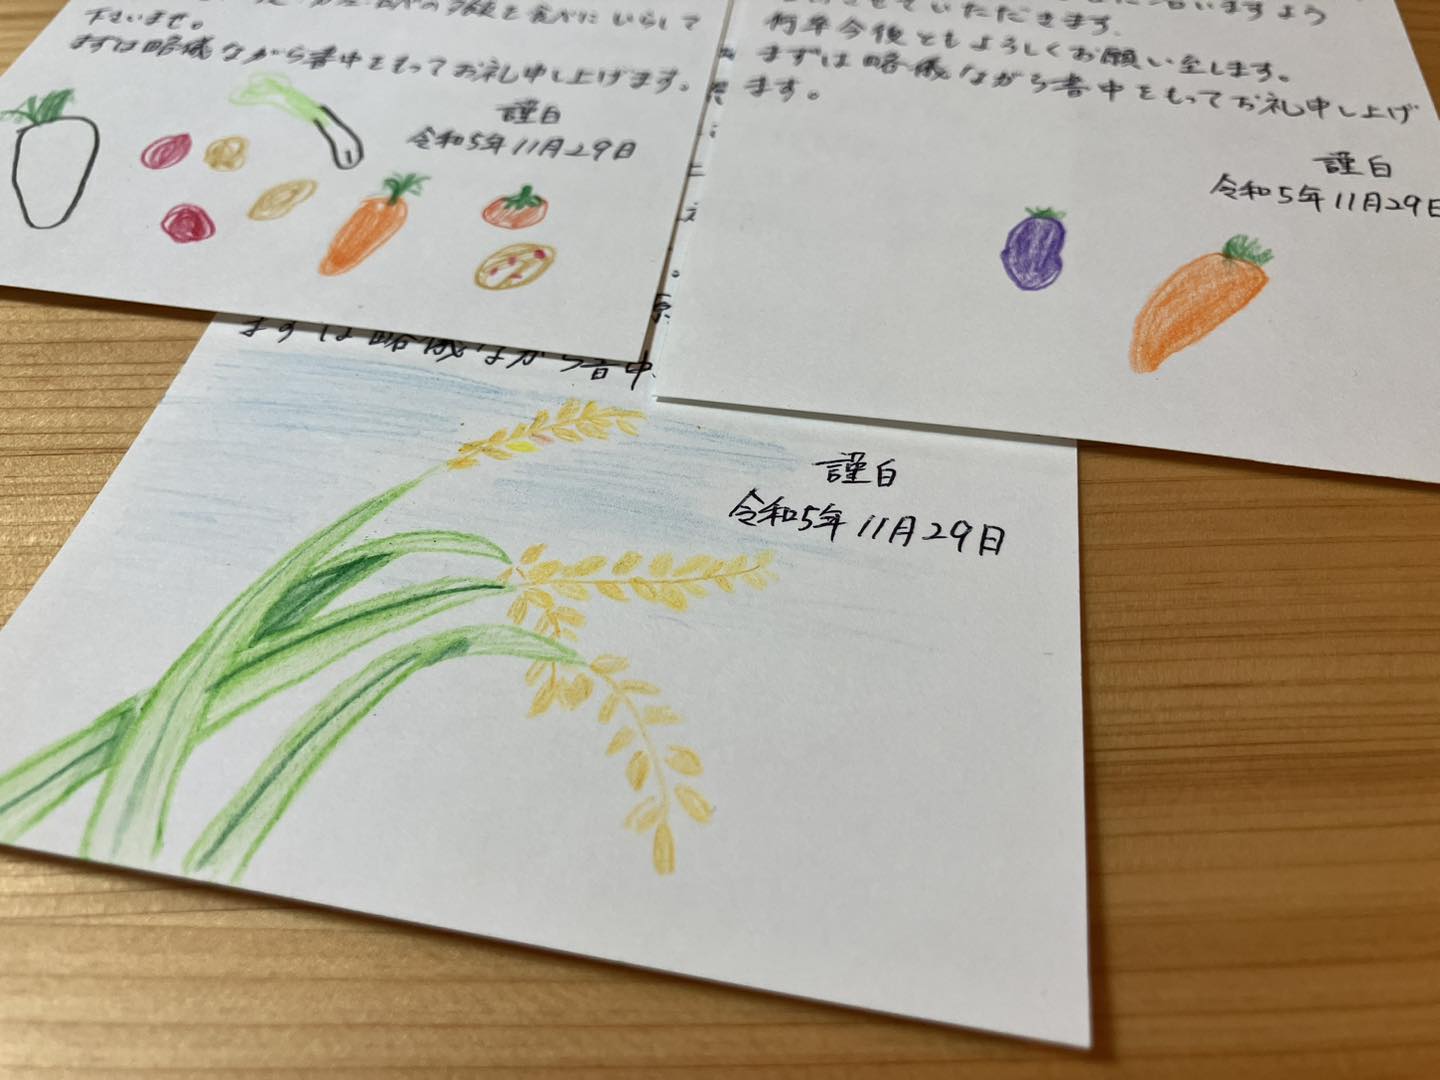 の
を食べにいらして
下さいませ。
まずは略儀ながら書中をもってお礼申し上げます。
謹白
令和5年11月29日
いますよう
させていただきます。
何卒今後ともよろしくお願い至します。
まずは略儀ながら書中をもってお礼申し上げ
ます。
謹白
令和5年11月29日
まずは略儀ながら書中
謹白
令和5年11月29日